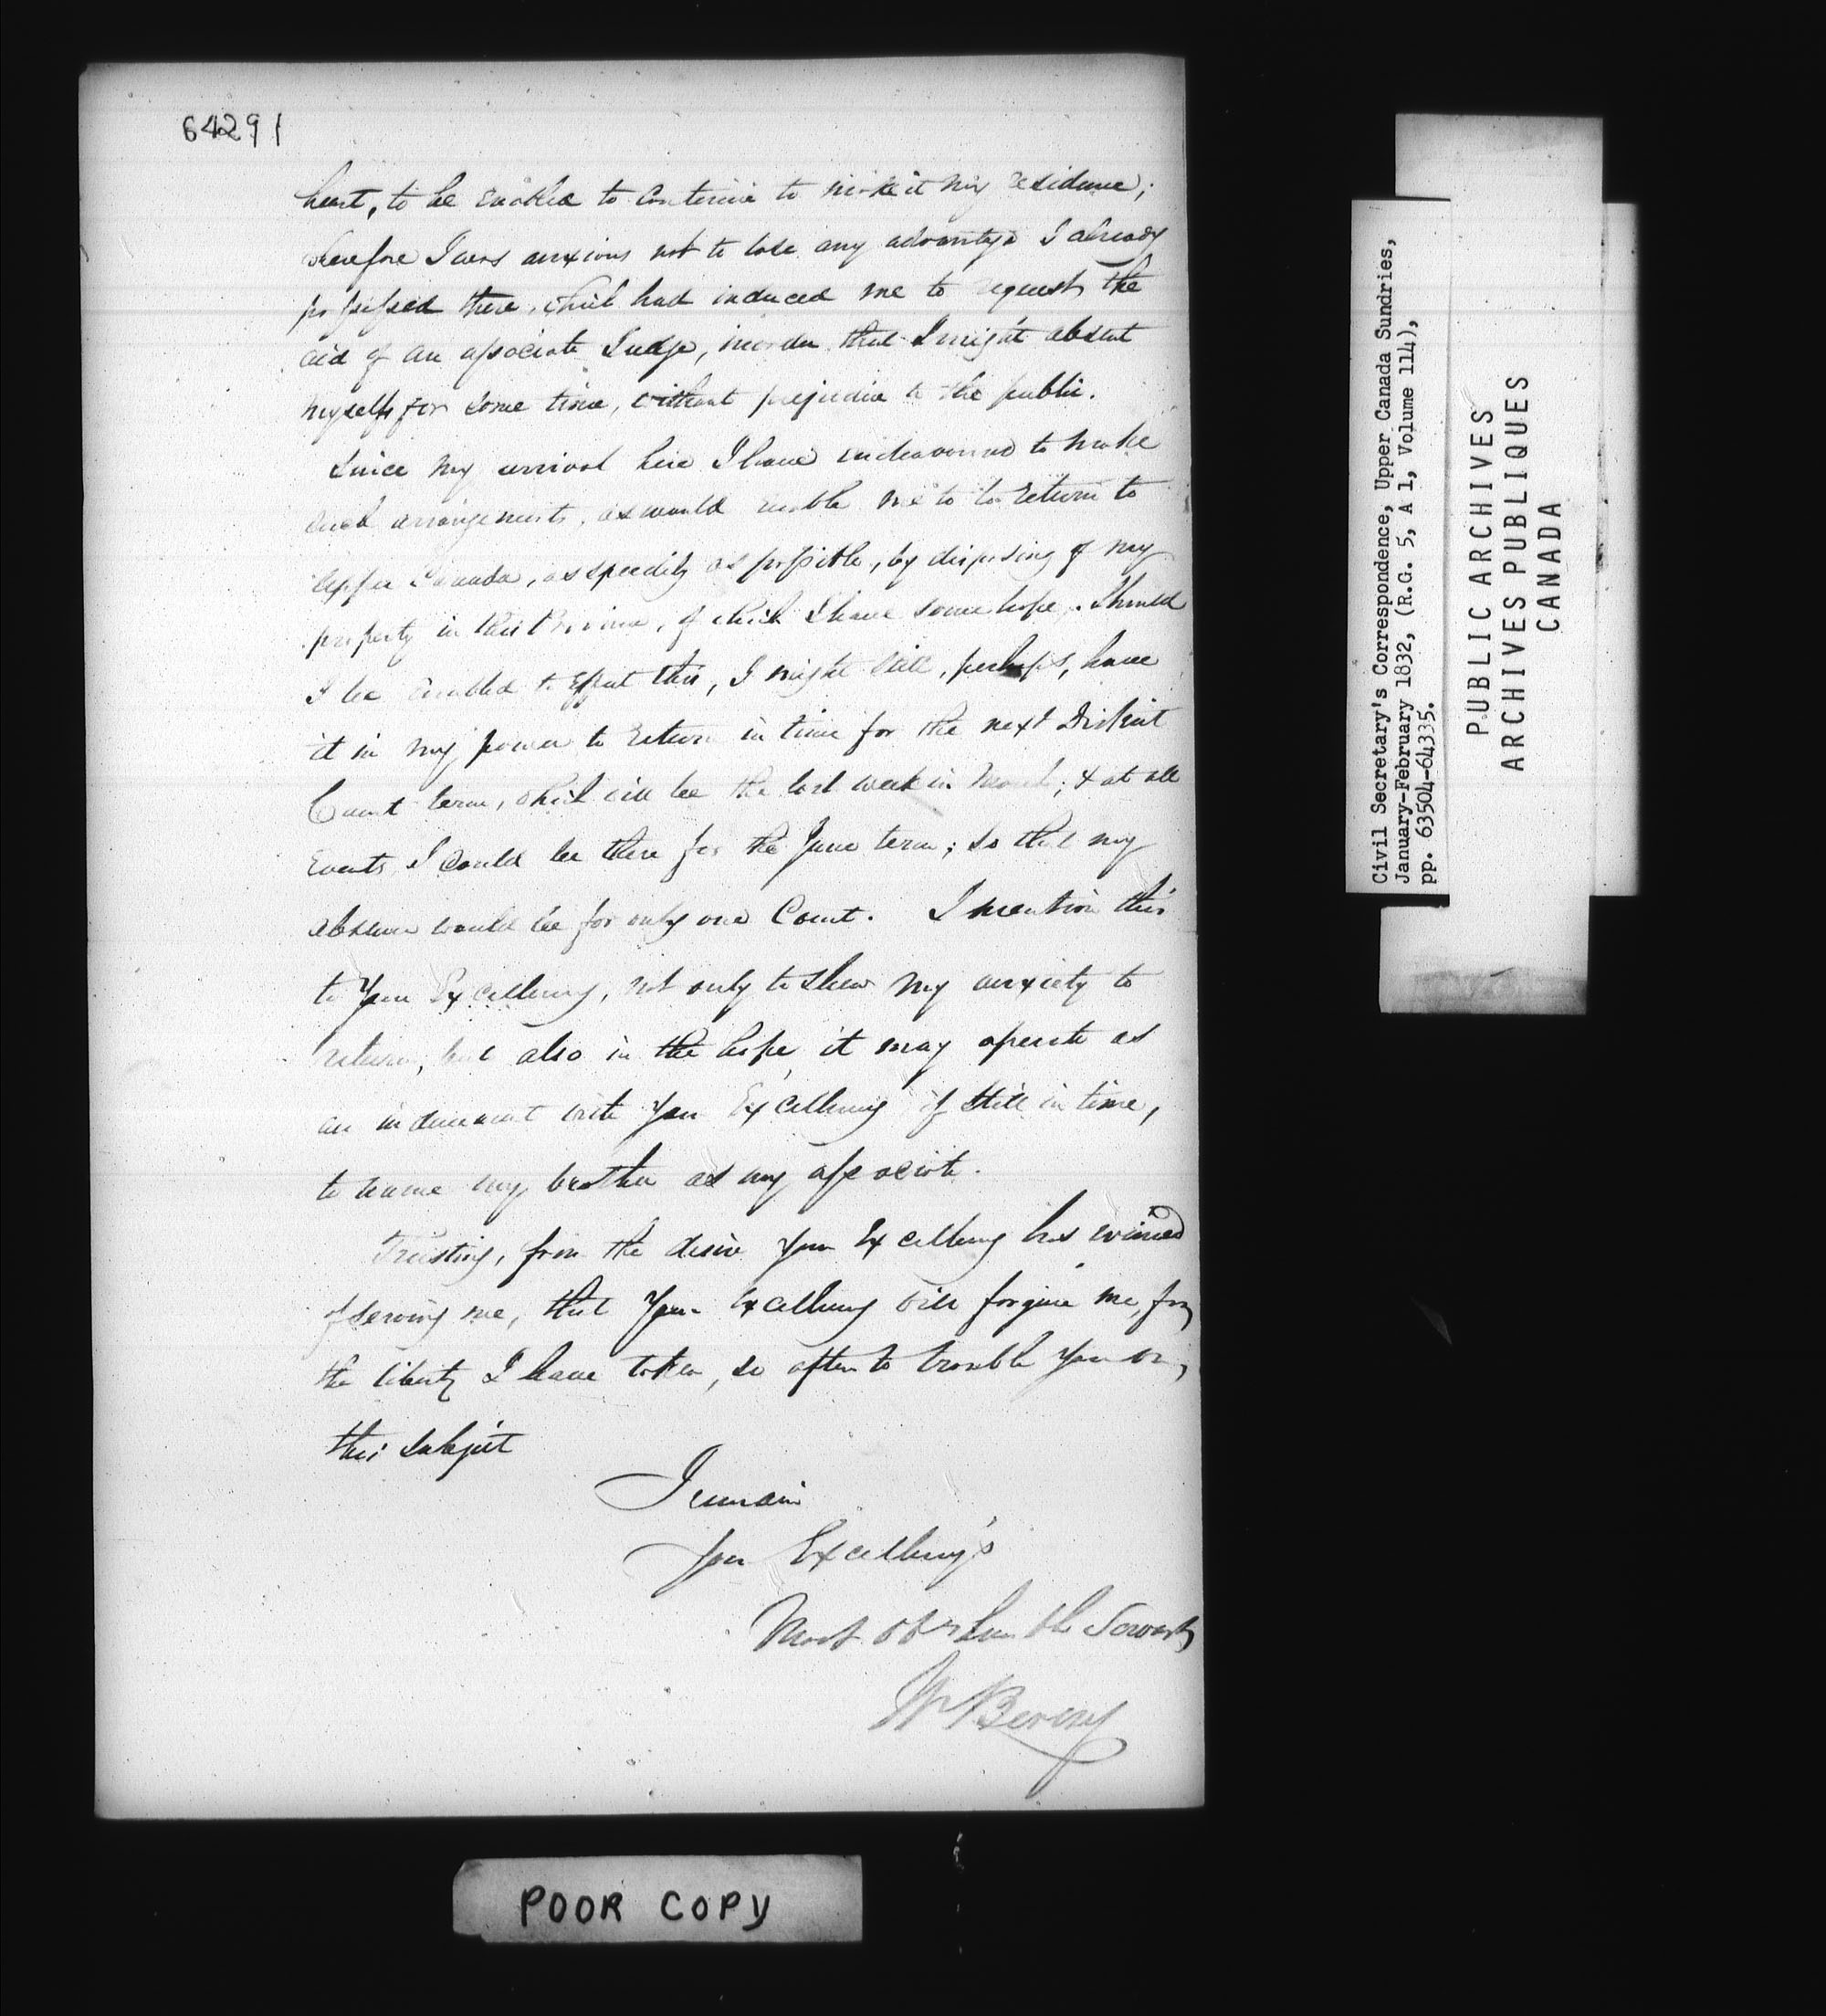 64291
heart, to be enabled to continue to make it my residence;
wherefore I was anxious not to lose any advantage I already
possessed there, which had induced me to request the
aid of an associate Judge, in order that I might absent
myself for some time, without prejudice to the public.
Since my arrival here I have endeavoured to make
such arrangements, as would enable me to return to
Upper Canada, as speedily as possible, by disposing of my
property in this Province, of which I have some hope. Should
I be enabled to effect this, I might still, perhaps, have
it in my power to return in time for the next District
Court term, which will be the last week in March; & at all
Events I could be there for the June term; so that my
absence would be for only one Court. I mention this
to Your Excellency, not only to shew my anxiety to
return, but also in the hope, it may operate as
an inducement with Your Excellency if still in time,
to name my brother as my associate.
Trusting, from the desire Your Excellency has evinced
of serving me, that Your Excellency will forgive me, for
the liberty I have taken, so often to trouble You on
this subject
I remain
Your Excellency's
Most Obt humble Servant
W Berczy
POOR COPY
Civil Secretary's Correspondence, Upper Canada Sundries,
January-February 1832, (R.G. 5, A 1, Volume 114),
pp. 63504-64335.
PUBLIC ARCHIVES
ARCHIVES PUBLIQUES
CANADA